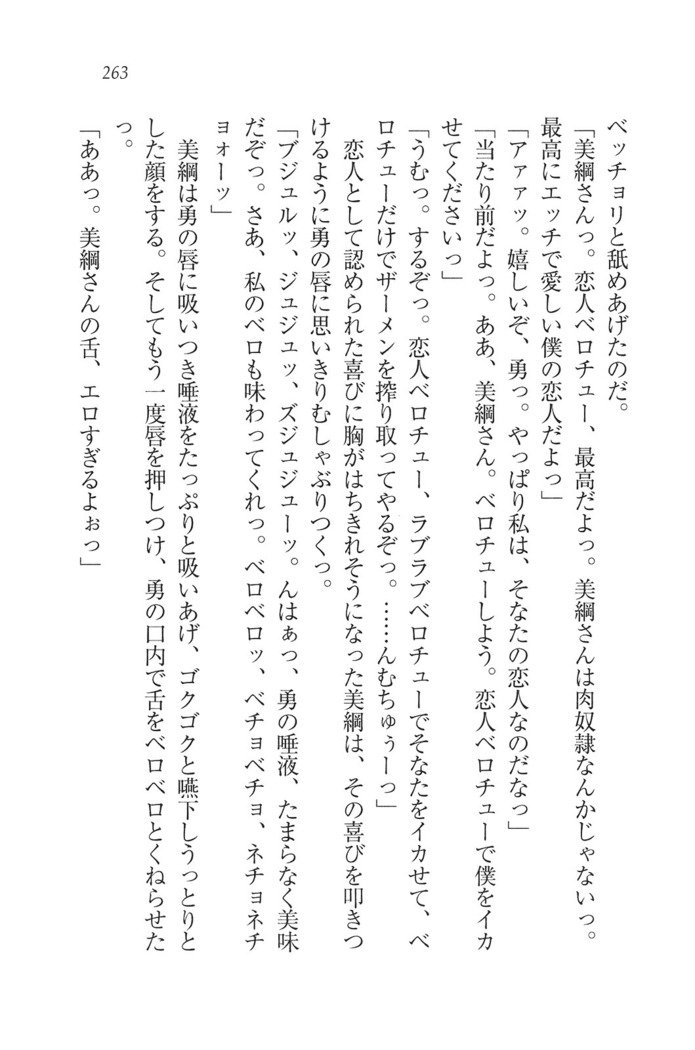 263
ベッチョリと舐めあげたのだ。
「美綱さんっ。恋人ベロチュー、最高だよっ。美綱さんは肉奴隷なんかじゃないっ。
最高にエッチで愛しい僕の恋人だよっ」
「アァァッ。嬉しいぞ、勇っ。やっぱり私は、そなたの恋人なのだなっ」
「当たり前だよっ。ああ、美綱さん。ベロチューしよう。恋人ベロチューで僕をイカ
せてくださいっ」
「うむっ。するぞっ。恋人ベロチュー、ラブラブベロチューでそなたをイカせて、ベ
ロチューだけでザーメンを搾り取ってやるぞっ。……んむちゅぅーっ」
恋人として認められた喜びに胸がはちきれそうになった美綱は、その喜びを叩きつ
けるように勇の唇に思いきりむしゃぶりつくっ。
「ブジュルッ、ジュジュッ、ズジュジューッ。んはぁっ、勇の唾液、たまらなく美味
だぞっ。さあ、私のベロも味わってくれっ。ベロベロッ、ベチョベチョ、ネチョネチ
ョォーッ」
美綱は勇の唇に吸いつき唾液をたっぷりと吸いあげ、ゴクゴクと嚥下しうっとりと
した顔をする。そしてもう一度唇を押しつけ、勇の口内で舌をベロベロとくねらせた
っ。
「ああっ。美綱さんの舌、エロすぎるよぉっ」